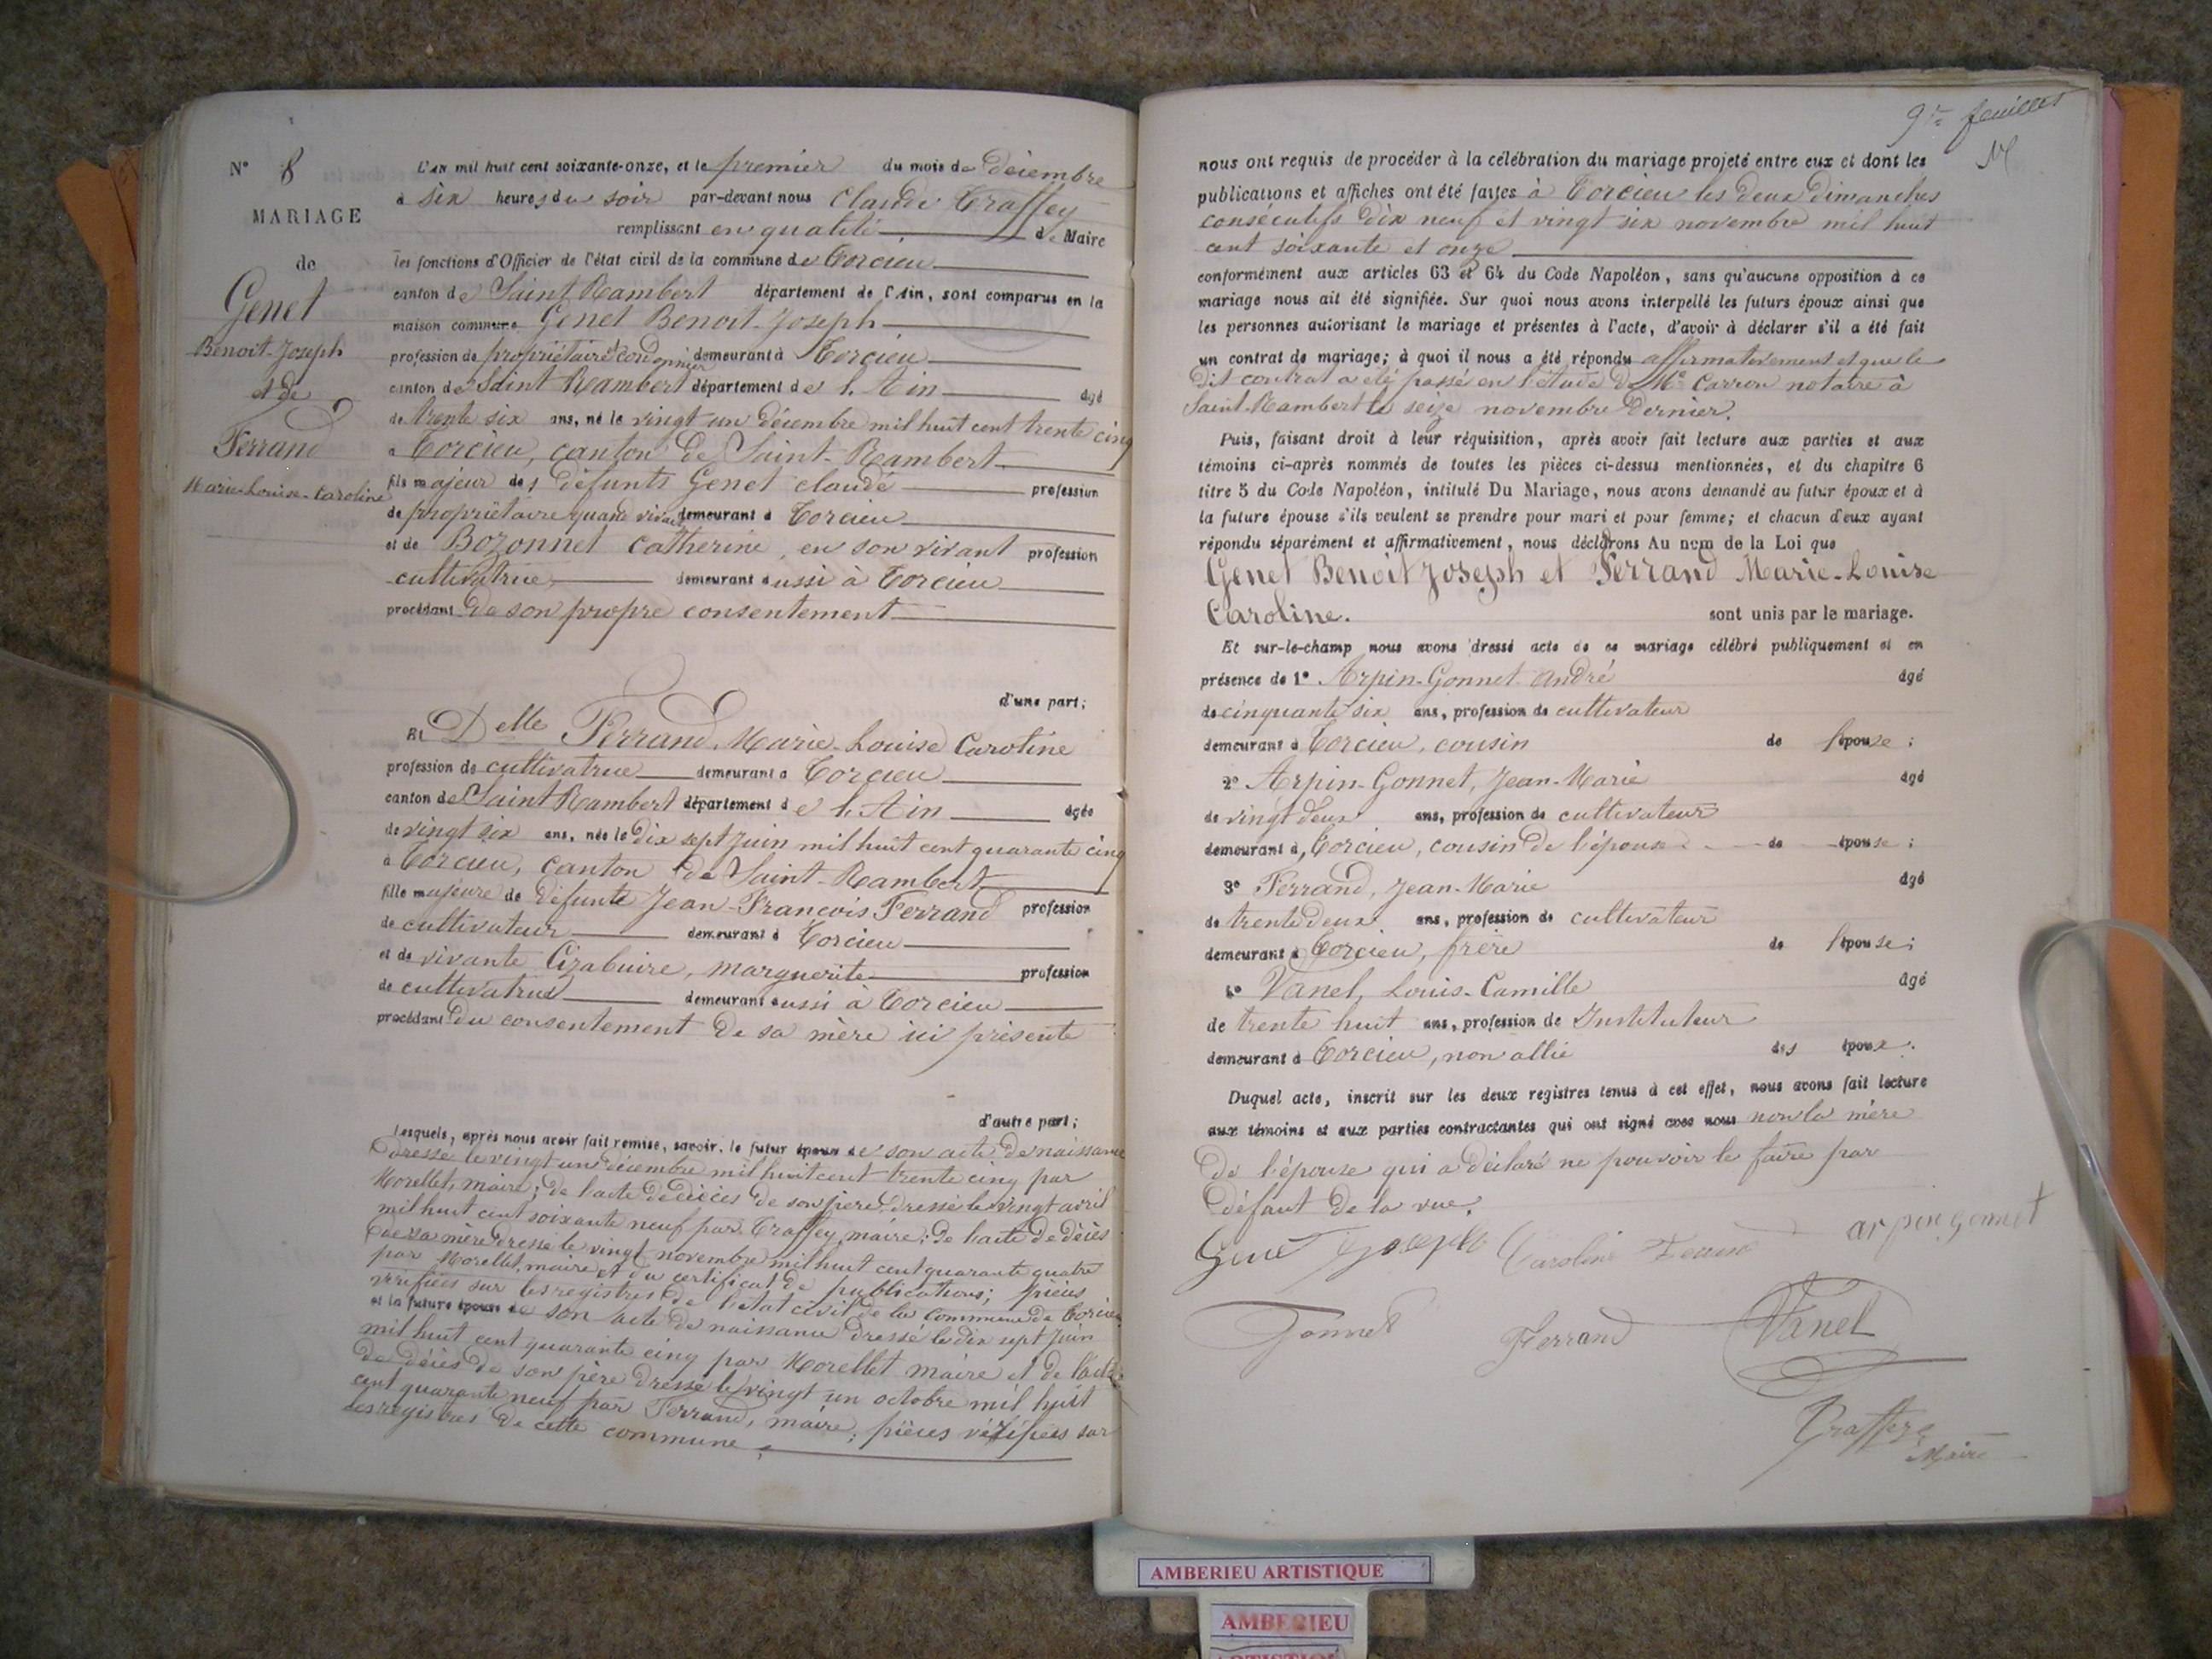 N° 8
MARIAGE
de
Genet
Benoit-Joseph
et de
Ferrand
Marie-Louise-Caroline
L'an mil huit cent soixante-onze, et le premier du mois de décembre
à six heures du soir par-devant nous Claude Traffey
remplissant en qualité de Maire
les fonctions d'Officier de l'état civil de la commune de Torcieu
canton de Saint Rambert département de l'Ain, sont comparus en la
maison commune Genet Benoit-Joseph
profession de propriétaire et cordonnier demeurant à Torcieu
canton de Saint Rambert département de l'Ain âgé
de trente six ans, né le vingt un décembre mil huit cent trente cinq
à Torcieu, canton de Saint-Rambert
fils majeur des défunts Genet claude profession
de propriétaire quand vivait demeurant à Torcieu
et de Bozonnet catherine, en son vivant profession
cultivatrice demeurant aussi à Torcieu
procédant de son propre consentement
d'une part;
Et Delle Ferrand, Marie-Louise Caroline
profession de cultivatrice demeurant à Torcieu
canton de Saint Rambert département de l'Ain âgée
de vingt six ans, née le dix sept juin mil huit cent quarante cinq
à Torcieu, canton de Saint-Rambert
fille majeure de défunte Jean-François Ferrand profession
de cultivateur demeurant à Torcieu
et de vivante Cizabuire, marguerite profession
de cultivatrice demeurant aussi à Torcieu
procédant du consentement de sa mère ici présente
d'autre part;
Lesquels, après nous avoir fait remise, savoir, le futur époux de son acte de naissance
dressé le vingt un décembre mil huit cent trente cinq par
Morellet, maire; de l'acte de décès de son père dressé le vingt avril
mil huit cent soixante neuf par Traffey, maire; de l'acte de décès
de sa mère dressé le vingt novembre mil huit cent quarante quatre
par Morellet, maire et du certificat de publications; pièces
vérifiées sur les registres de l'état civil de la commune de Torcieu
et la future épouse de son acte de naissance dressé le dix sept juin
mil huit cent quarante cinq par Morellet maire et de l'acte
de décès de son père dressé le vingt un octobre mil huit
cent quarante neuf par Ferrand, maire; pièces vérifiées sur
les registres de cette commune;
feuillet
nous ont requis de procéder à la célébration du mariage projeté entre eux et dont les
publications et affiches ont été faites à Torcieu les deux dimanches
consécutifs dix neuf et vingt six novembre mil huit
cent soixante et onze
conformément aux articles 63 et 64 du Code Napoléon, sans qu'aucune opposition à ce
mariage nous ait été signifiée. Sur quoi nous avons interpellé les futurs époux ainsi que
les personnes autorisant le mariage et présentes à l'acte, d'avoir à déclarer s'il a été fait
un contrat de mariage; à quoi il nous a été répondu affirmativement et que le
dit contrat a été passé en l'étude de Me Carron notaire à
Saint-Rambert le seize novembre dernier.
Puis, faisant droit à leur réquisition, après avoir fait lecture aux parties et aux
témoins ci-après nommés de toutes les pièces ci-dessus mentionnées, et du chapitre 6
titre 5 du Code Napoléon, intitulé Du Mariage, nous avons demandé au futur époux et à
la future épouse s'ils veulent se prendre pour mari et pour femme; et chacun d'eux ayant
répondu séparément et affirmativement, nous déclarons Au nom de la Loi que
Genet Benoit Joseph et Ferrand Marie-Louise
Caroline. sont unis par le mariage.
Et sur-le-champ nous avons dressé acte de ce mariage célébré publiquement et en
présence de 1° Arpin-Gonnet André âgé
de cinquante six ans, profession de cultivateur
demeurant à Torcieu, cousin de l'épouse;
2° Arpin-Gonnet, Jean-Marie âgé
de vingt deux ans, profession de cultivateur
demeurant à Torcieu, cousin de l'épouse de épouse;
3° Ferrand, Jean-Marie âgé
de trente deux ans, profession de cultivateur
demeurant à Torcieu, frère de l'épouse;
4° Vanel, Louis-Camille âgé
de trente huit ans, profession de Instituteur
demeurant à Torcieu, non allié des époux.
Duquel acte, inscrit sur les deux registres tenus à cet effet, nous avons fait lecture
aux témoins et aux parties contractantes qui ont signé avec nous non la mère
de l'épouse qui a déclaré ne pouvoir le faire par
défaut de la vue.
Genet Joseph Caroline Ferrand arpin gonnet
Gonnet Ferrand Vanel
Traffey
Maire
AMBERIEU ARTISTIQUE
AMBERIEU
ARTISTIQUE